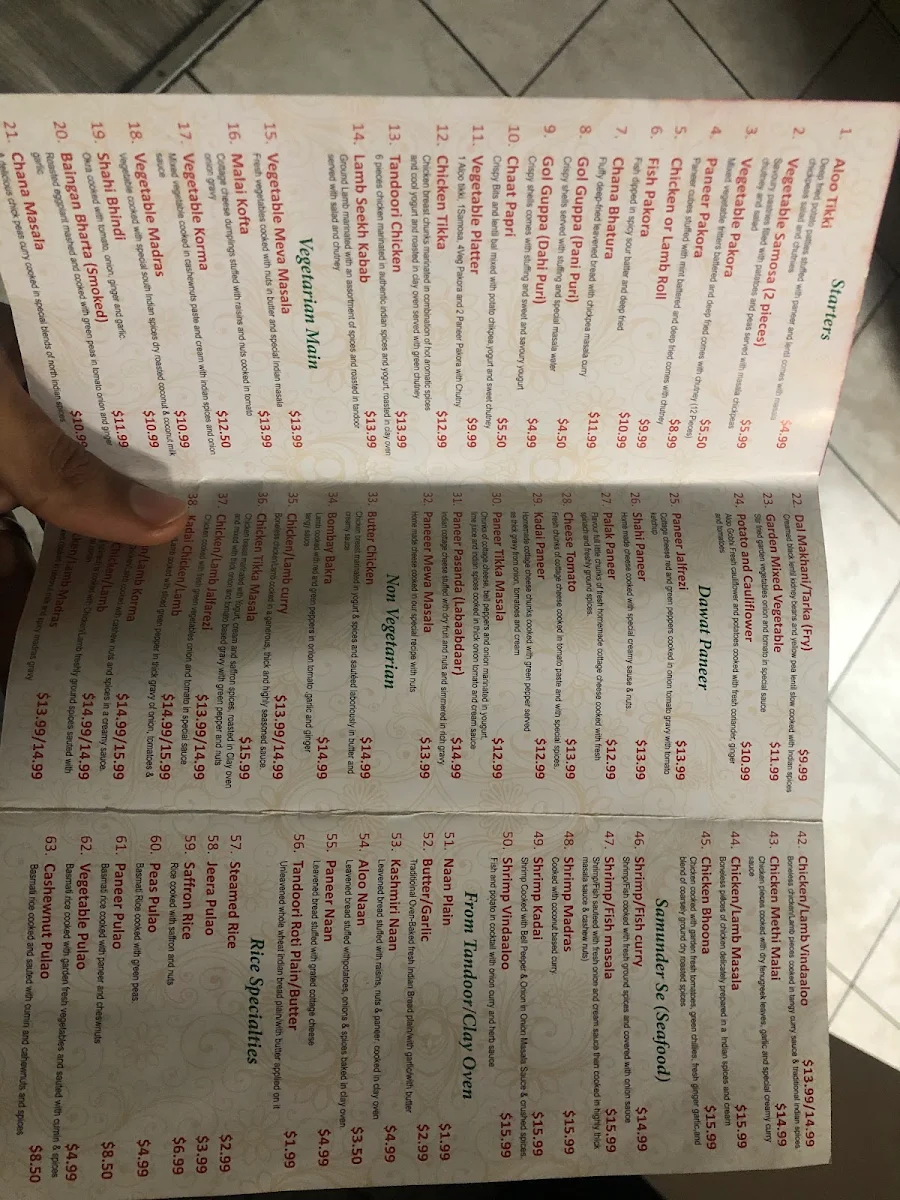 Starters
1. Aloo Tikki $4.99
Deep fried potato patties stuffed with
chickpeas salad and chutnies
2. Vegetable Samosa (2 pieces) $5.99
Savoury pastries filled with potatoes and peas served with masala chickpeas
chutney and salad
3. Vegetable Pakora $5.50
Mixed vegetable fritters battered and deep fried comes with chutney (12 Pieces)
4. Paneer Pakora $8.99
Paneer cubes stuffed with mint battered and deep fried comes with chutney
5. Chicken or Lamb Roll $9.99
6. Fish Pakora $10.99
Fish dipped in spicy sour batter and deep fried
7. Chana Bhatura $11.99
Fluffy deep-fried leavened bread with chickpea masala curry
8. Gol Guppa (Pani Puri) $4.50
Crispy shells served with stuffing and special masala water
9. Gol Guppa (Dahi Puri) $4.99
Crispy shells comes with stuffing and sweet and savoury yogurt
10. Chaat Papri $5.50
Crispy Bits and lentil ball mixed with potato chikpea yogurt and sweet chutney
11. Vegetable Platter $9.99
1 Aloo tikki, 1Samosa, 4Veg Pakora and 2 Paneer Pakora with Chutny
12. Chicken Tikka $12.99
Chicken breast chunks marinated in combination of hot aromatic spices
and cool yogurt and roasted in clay oven served with green chutney
13. Tandoori Chicken $13.99
6 pieces chicken marinated in authentic indian spices and yogurt, roasted in clay oven
14. Lamb Seekh Kabab $13.99
Ground Lamb marinated with an assortment of spices and roasted in tandoor
served with salad and chutney
Vegetarian Main
15. Vegetable Meva Masala $13.99
Fresh vegetables cooked with nuts in butter and special Indian masale
16. Malai Kofta $13.99
Cottage cheese dumplings stuffed with raisins and nuts cooked in tomato
onion gravy
17. Vegetable Korma $12.50
Mixed vegetable cooked in cashewnuts paste and cream with indian spices and onion
sauce
18. Vegetable Madras $10.99
Vegetable cooked with special south Indian spices dry roasted coconut & coconut milk
19. Shahi Bhindi $10.99
Okra cooked with tomato, onion, ginger and garlic
20. Baingan Bharta (Smoked) $11.99
Roasted eggplant mashed and cooked with green peas in tomato onion and ginger
garlic
21. Chana Masala $10.99
A delicious chick peas curry cooked in special blends of north indian spices
22. Dal Makhani/Tarka (Fry) $9.99
Creamed black lentil kidney beans and yellow pea lentil slow cooked with Indian spices
23. Garden Mixed Vegetable $11.99
Stir fried garden vegetables onion and tomato in special sauce
24. Potato and Cauliflower $10.99
Aloo Gobhi Fresh cauliflower and potatoes cooked with fresh coriander, ginger
and tomatoes
Dawat Paneer
25. Paneer Jalfrezi $13.99
Cottage cheese red and green peppers cooked in onion tomato gravy with tomato
ketchup
26. Shahi Paneer $13.99
Home made cheese cooked with special creamy sauce & nuts
27. Palak Paneer $12.99
Flavour full little chunks of fresh homemade cottage cheese cooked with fresh
spinach and freshly ground spices
28. Cheese Tomato $13.99
Fresh chunks of cottage cheese cooked in tomato paste and with special spices.
29. Kadai Paneer $12.99
Homemade cottage cheese chunks cooked with green pepper served
as thick gravy from onion, tomatoes and cream
30. Paneer Tikka Masala $12.99
Chunks of cottage cheese bell peppers and onion marinated in yougurt,
lime juice and indian spices cooked in thick onion tomato and cream sauce
31. Paneer Pasanda (Labaabdaar) $14.99
Indian cottage cheese stuffed with dry fruit and nuts and simmered in rich gravy
32. Paneeer Mewa Masala $13.99
Home made cheese cooked in our special recipe with nuts
Non Vegetarian
33. Butter Chicken $14.99
Chicken marinated in yogurt & spices and sauteed laboriously in butter and
creamy sauce
34. Bombay Bakra $14.99
Lamb cooked with red and green peppers in onion tomato ,garlic and ginger
tangy sauce
35. Chicken/Lamb curry $13.99/14.99
Boneless chicken/Lamb cooked in a generous, thick and highly seasoned sauce.
36. Chicken Tikka Masala $15.99
Chicken marinated with Yogurt, cream and saffron spices, roasted in Clay oven
and mixed with thick onion and tomato based gravy with green pepper and nuts
37. Chicken/Lamb Jalfarezi $13.99/14.99
Chicken cooked with fresh green vegetables onion and tomato in special sauce
38. Kadai Chicken/Lamb $14.99/15.99
cooked with sliced green pepper in thick gravy of onion, tomatoes &
Lamb Korma $14.99/15.99
cooked with cashew nuts and spices in a creamy sauce.
Chicken/Lamb $14.99/14.99
Chicken/Lamb freshly ground spices sauted with
Lamb Madras $13.99/14.99
42. Chicken/Lamb Vindaaloo $13.99/14.99
Boneless chicken/Lamb pieces cooked in tangy curry sauce & traditional indian spices
43. Chicken Methi Malai $14.99
Chicken pieces cooked with dry fenugreek leaves, garlic and special creamy curry
sauce
44. Chicken/Lamb Masala $15.99
Boneless pieces of chicken delicately prepared in a Indian spices and cream
45. Chicken Bhoona $15.99
Chicken cooked with garden fresh tomatoes, green chillies, fresh ginger garlic,and
blend of coarsely ground roasted spices
Samunder Se (Seafood)
46. Shrimp/Fish curry $14.99
Shrimp/Fish cooked with fresh ground spices and covered with onion sauce
47. Shrimp/Fish masala $15.99
Shrimp/Fish sauteed with fresh onion and cream sauce then cooked in highly thick
masala sauce & cashew nuts)
48. Shrimp Madras $15.99
Cooked with coconut based curry
49. Shrimp Kadai $15.99
Shrimp Cooked with Bell Peeper & Onion in Onion Masala Sauce & crushed spices,
50. Shrimp Vindaaloo $15.99
Fish and potato in cocktail with onion curry and herb sauce
From Tandoor/Clay Oven
51. Naan Plain $1.99
52. Butter/Garlic $2.99
Traditional Oven-Baked fresh Indian Bread plain/with garlic/with butter
53. Kashmiri Naan $4.99
Leavened bread stuffed with raisins, nuts & paneer, cooked in clay oven
54. Aloo Naan $3.50
Leavened bread stuffed withpotatoes, onions & spices baked in clay oven
55. Paneer Naan $4.99
Leavened bread stuffed with grated cottage cheese
56. Tandoori Roti Plain/Butter $1.99
Unleavened whole wheat Indian bread plain/with butter applied on it
Rice Specialties
57. Steamed Rice $2.99
58. Jeera Pulao $3.99
59. Saffron Rice $6.99
Rice cooked with saffron and nuts
60. Peas Pulao $4.99
Basmati Rice cooked with green peas
61. Paneer Pulao $8.50
Basmati rice cooked with paneer and chesewnuts
62. Vegetable Pulao $4.99
Basmati rice cooked with garden fresh vegetables and sauted with cumin & spices
63. Cashewnut Pulao $8.50
Basmati rice cooked and sauted with cumin and cahsewnuts and spices